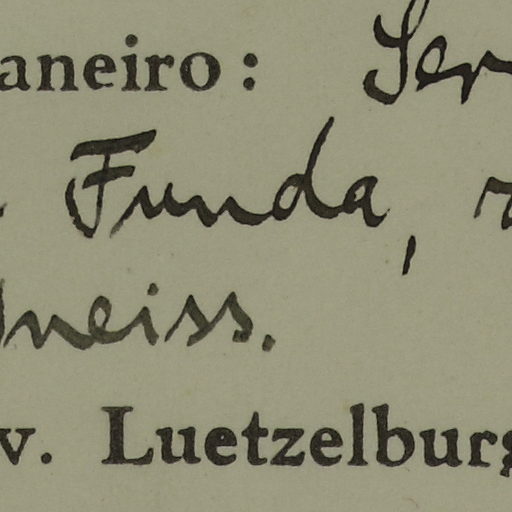 aneiro: Ser
Funda,
neiss.
v. Luetzelburg